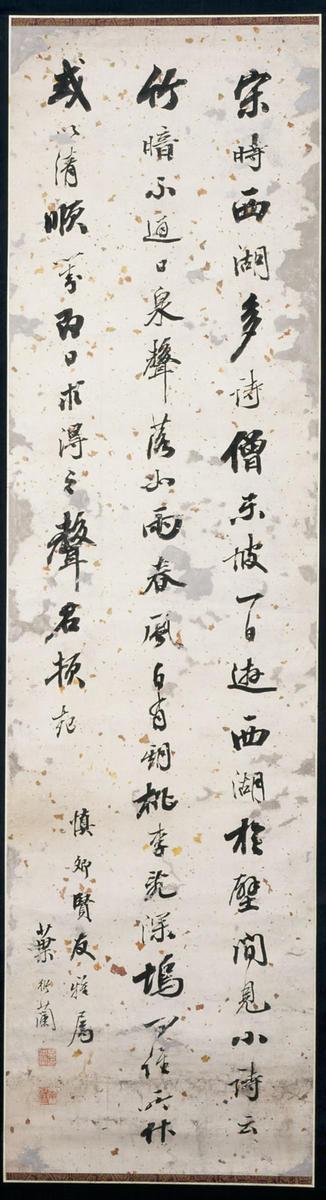 宋時西湖多詩僧東坡一日遊西湖於壁間見小詩云
竹暗不通日泉聲落如雨春風自有期桃李亂深塢問誰所作
或以清順答即日求得之聲名頓起
慎卿賢友雅屬
葉衍蘭